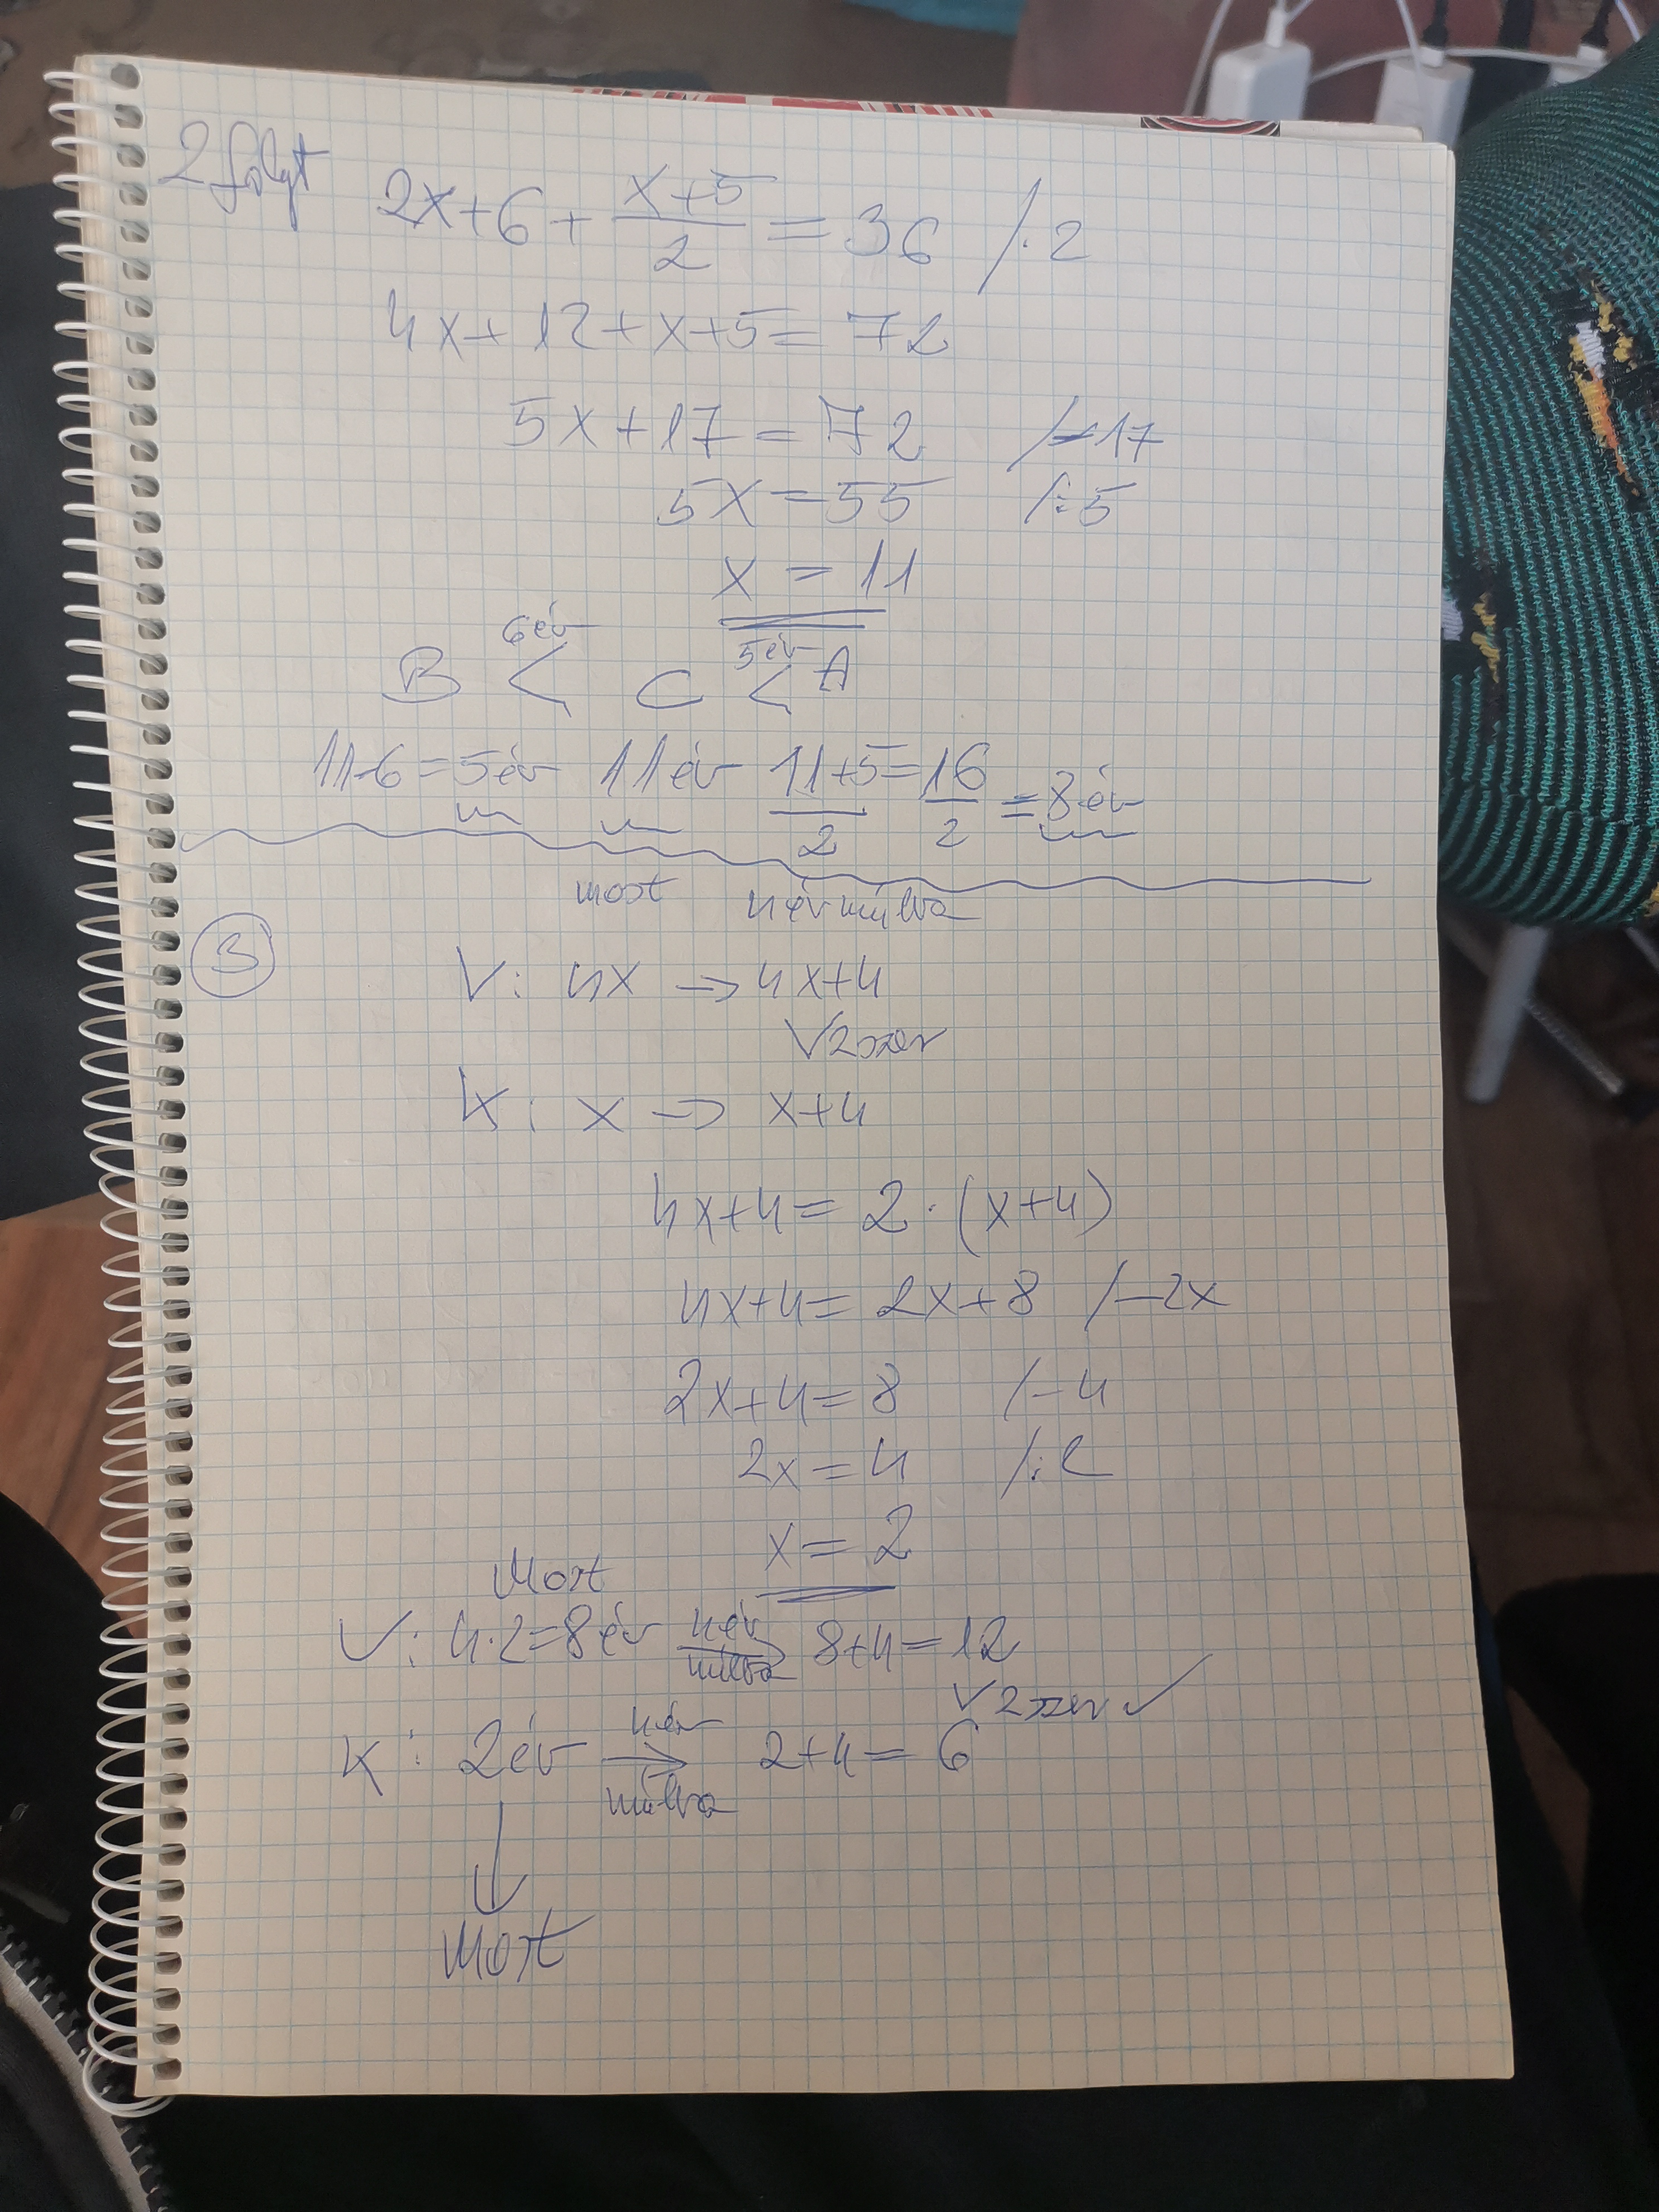 2 folyt
2x+6+\frac{x+5}{2}=36 /·2
4x+12+x+5=72
5x+17=72 /-17
5x=55 /:5
x=11
6 év 5 év
B < C < A
11-6=5 év 11 év \frac{11+5}{2}=\frac{16}{2}=8 év
most 4 év múlva
3
V: 4x → 4x+4
V 2szer
K: x → x+4
4x+4=2·(x+4)
4x+4=2x+8 /-2x
2x+4=8 /-4
2x=4 /:2
x=2
Most
V: 4·2=8 év 4 év múlva → 8+4=12
V 2szer ✓
K: 2 év 4 év múlva → 2+4=6
↓
Most